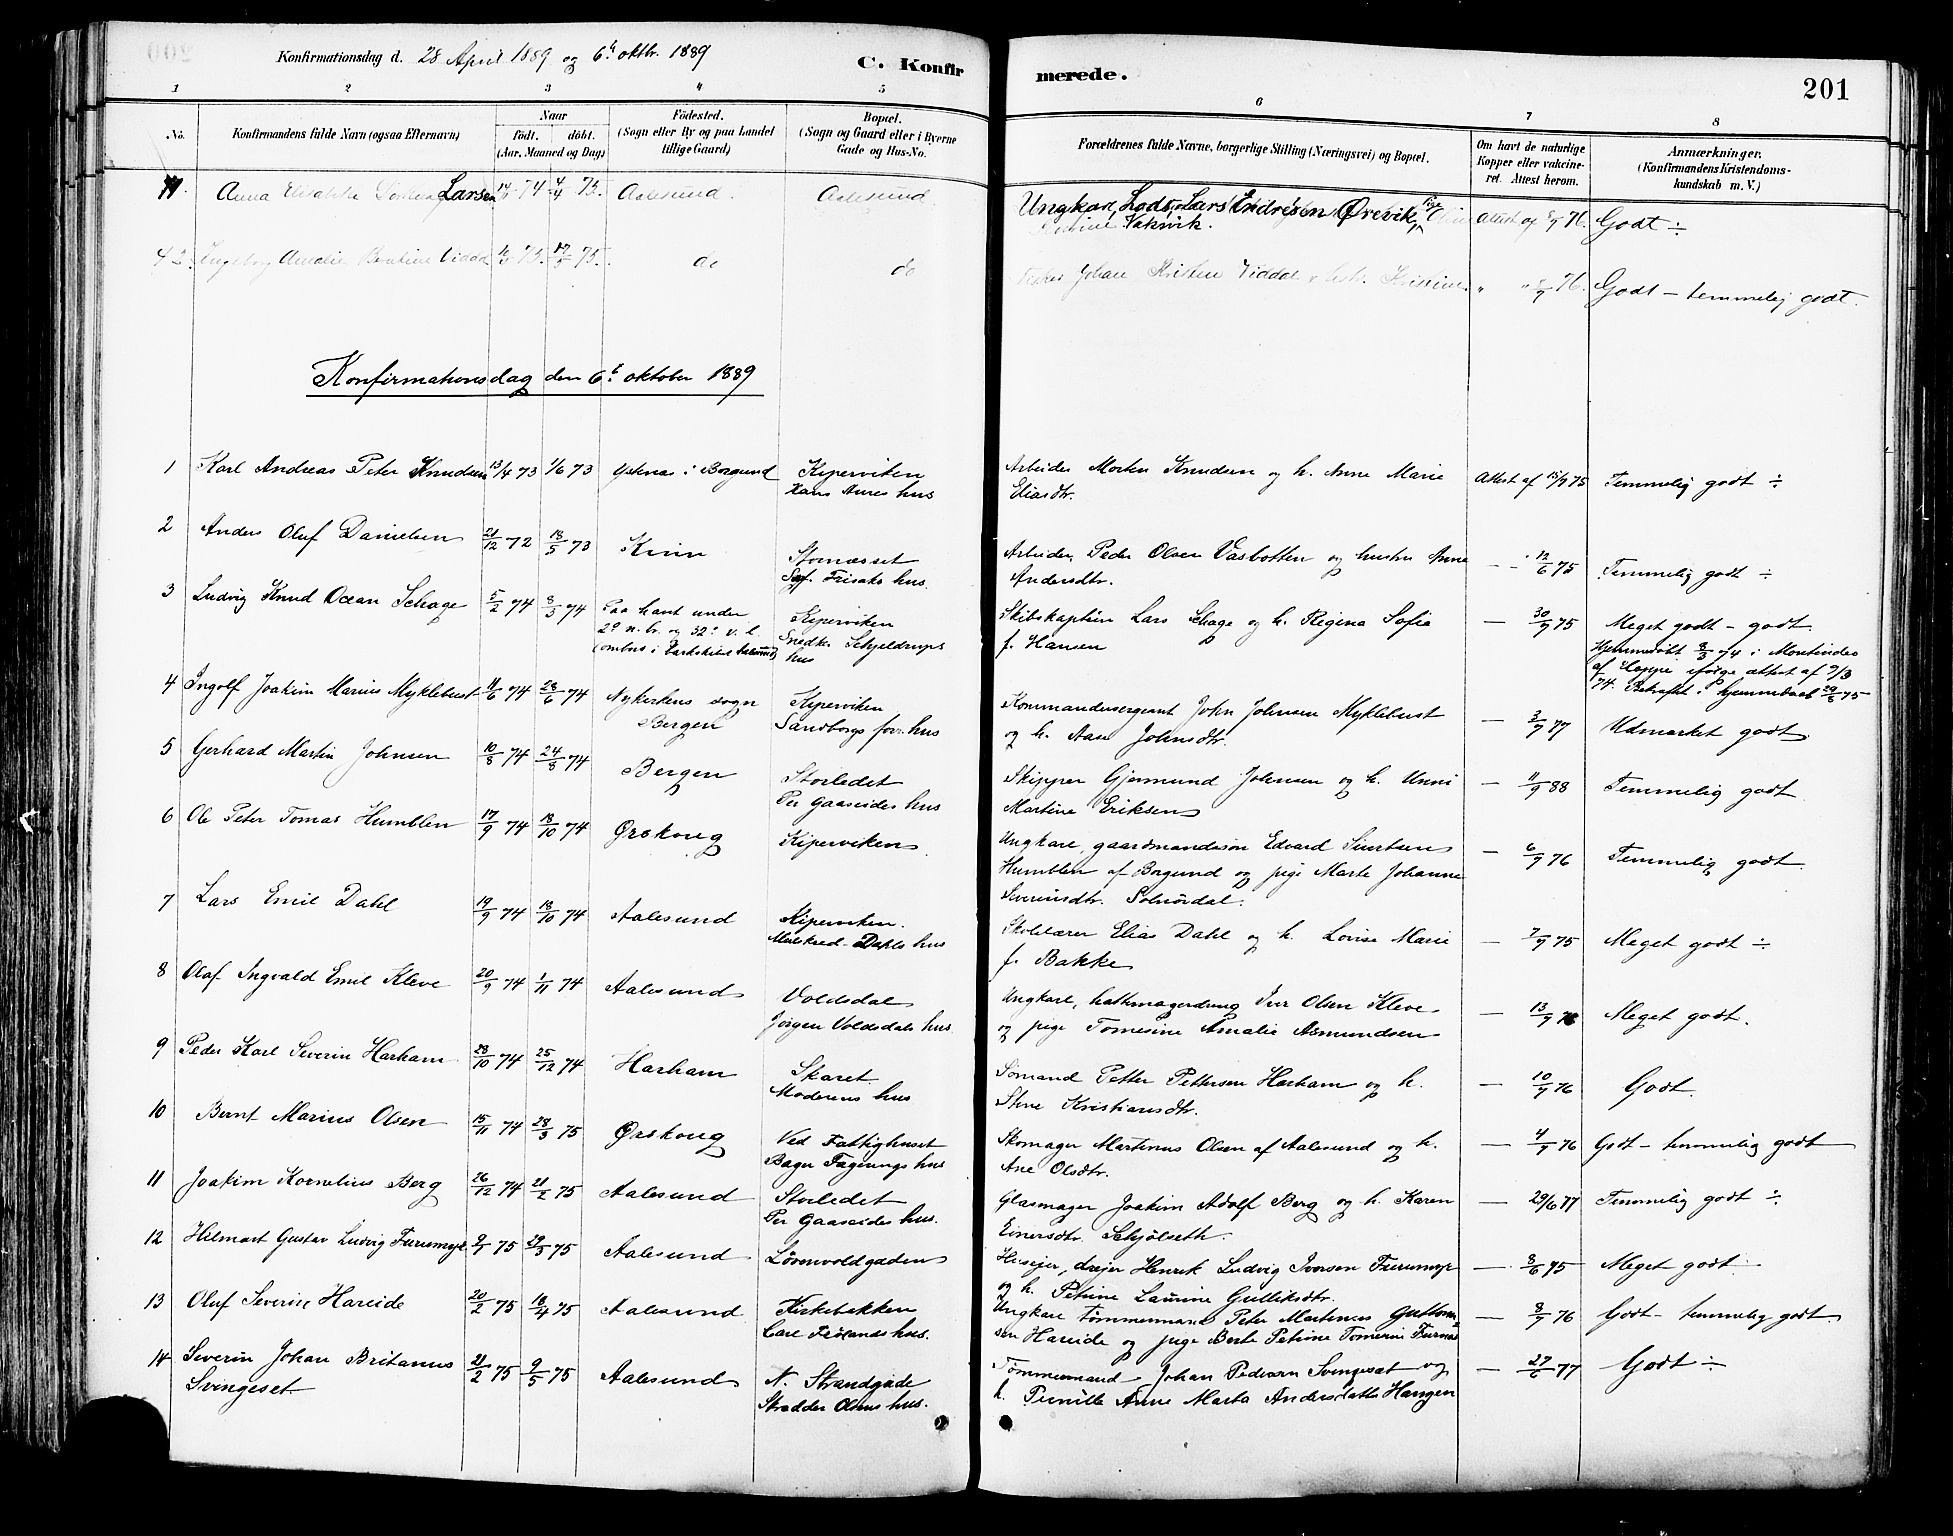 Konfirmationsdag d. 28 April 1889 og 6t oktbr. 1889
C. Konfirmerede.
201
1 2 3 4 5 6 7 8
No.
Konfirmandens fulde Navn (ogsaa Efternavn)
Naar
födt. döbt.
(Aar, Maaned og Dag)
Födested.
(Sogn eller By og paa Landet
tillige Gaard)
Bopæl.
(Sogn og Gaard eller i Byerne
Gade og Hus-No.
Forældrenes fulde Navne, borgerlige Stilling (Næringsvei) og Bopæl.
Om havt de naturlige
Kopper eller vakcine-
ret. Attest herom.
Anmærkninger.
(Konfirmandens Kristendoms-
kundskab m. V.)
Anna Larsen 74 4/4 75. Aalesund. Aalesund Ungkarl, Lods, Lars Endresen Ørevik, Attest af 76. Godt ÷
Vaksvik.
42. Ingeborg Amalie Bentine Viddal 75. 75. do do Fisker Johan Kristen Viddal Kristine. " " 76. Godt – temmelig godt.
Konfirmationsdag den 6t oktober 1889
1 Karl Andreas Peter Knudsen 13/4 73 1/6 73 i Borgund Kiperviken Arbeider Morten Knudsen og h. Anne Marie Attest af 15/9 75 Temmelig godt ÷
Hans Aures hus Eliasdtr.
2 Anders Oluf Danielsen 21/12 72 18/5 73 Kinn Stornæsset Arbeider, Peder Olsen Vasbotten og hustru Anne – – 12/6 75 Temmelig godt ÷
Frisaks hus. Andersdtr.
3 Ludvig Knud Ocean Schage 5/2 74 8/3 74 Paa havet under Kiperviken Skibskaptein Lars Schage og h. Regina Sofie — 30/9 75 Meget godt – godt.
2° n. br. og 32° v. l. Snedker Schjeldrups f. Hansen Hjemmedöbt 8/3 74 i Montevideo
hus af ifölge attest af 9/3
74.
4 Ingolf Joakim Marius Myklebust 11/6 74 28/6 74 Nykirkens sogn Kiperviken Kommandersergeant John Johnsen Myklebust — 3/9 77 Udmærket godt
Bergen Sandborgs forr. hus og h. Aase Johnsdtr.
5 Gerhard Martin Johnsen 10/8 74 24/8 74 Bergen Storledet Skipper Gjermund Johnsen og h. Unni — 11/9 88 Temmelig godt
Per Gaaseides hus Martine Eriksen
6 Ole Peter Tomas Humblen 17/9 74 18/10 74 Ørskoug Kiperviken Ungkarl, gaardmandssön Edvard Siurtsen — 6/9 76 Temmelig godt.
Humblen af Borgund og pige Marte Johanne
Severinsdtr. Solnördal.
7 Lars Emil Dahl 19/9 74 18/10 74 Aalesund Kiperviken. Skolelærer Elias Dahl og h. Lovise Marie — 7/9 75 Meget godt ÷
Dahls hus f. Bakke
8 Olaf Ingvald Emil Kleve 20/9 74 1/11 74 Aalesund Voldsdal Ungkarl, hattemagerdreng Iver Olsen Kleve — 13/9 76 Meget godt.
Jörgen Voldsdals hus. og pige Tomesine Amalie Asmundsen
9 Peder Karl Severin Harham 28/10 74 25/12 74 Harham Skaret Sömand Petter Pettersen Harham og h. — 10/9 76 Godt.
Moderens hus Stine Kristiansdtr.
10 Bernt Marius Olsen 15/11 74 28/3 75 Ørskoug Ved Fattighuset Skomager Martinus Olsen af Aalesund og h. — 4/9 76 Godt – temmelig godt
Bager Fagerungs hus Ane Olsdtr.
11 Joakim Kornelius Berg 26/12 74 21/2 75 Aalesund Storledet Glasmager Joakim Adolf Berg og h. Karen — 29/6 77 Temmelig godt ÷
Per Gaaseides hus. Einersdtr. Schjölseth.
12 Hilmart Gustav Ludvig Furumyr 9/1 75 29/3 75 Aalesund Lövenvoldgaden Huseier, dreier Henrik Ludvig Iversen Furumyr — 8/6 75 Meget godt
og h. Petrine Laurine Gulliksdtr.
13 Oluf Severin Hareide 20/2 75 18/4 75 Aalesund Kirkebakken Ungkarl tömmermand Peter Martinus Guttorm- — 8/9 76 Godt – temmelig godt
Carl hus. sen Hareide og pige Berte Petrine
14 Severin Johan Britanus 21/2 75 9/5 75 Aalesund N. Strandgade Tömmermand Johan Pedersen Svingeset og — 27/6 77 Godt ÷
Svingeset Skrædder Olsens hus. h. Pernille Anne Marta Andersdatter Haugen